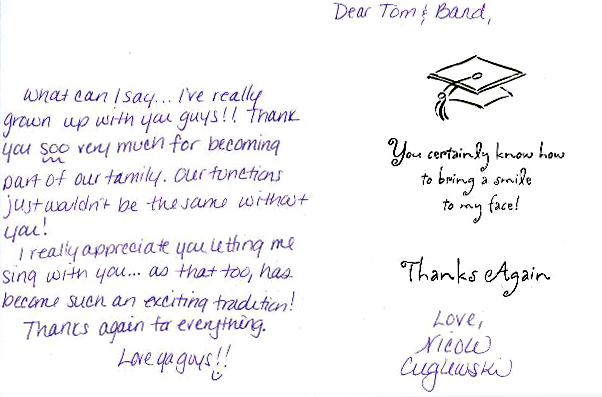 Dear Tom & Band,
What can I say... I've really
grown up with you guys!! Thank
you soo very much for becoming
part of our family. Our functions
just wouldn't be the same without
you!
I really appreciate you letting me
sing with you... as that too, has
become such an exciting tradition!
Thanks again for everything.
Love ya guys!!
You certainly know how
to bring a smile
to my face!
Thanks Again
Love,
Nicole